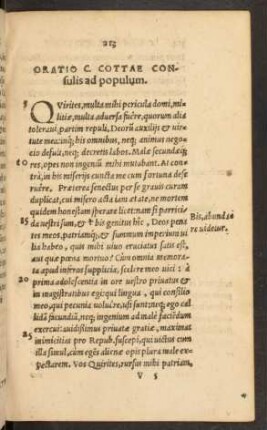 213
ORATIO C. COTTAE CON-
sulis ad populum.
5 QVirites, multa mihi pericula domi, mi-
litiæ, multa aduersa fuêre, quorum alia
toleraui, partim repuli, Deorũ auxilijs & uir
tute mea: inq; his omnibus, neq; animus nego
cio defuit, neq; decretis labos. Malæ secundæq;
10 res, opes non ingeniũ mihi mutabant. At con-
trà, in his miserijs cuncta me cum fortuna dese
ruêre. Præterea senectus per se grauis curam
duplicat, cui misero acta iam ætate, ne mortem
quidem honestam sperare licet: nam si parrici-
15 da uestri sum, & bis genitus hîc, Deos pena
tes meos, patriamq; & summum imperium ui
lia habeo, quis mihi uiuo cruciatus satis est,
aut quæ pœna mortuo? Cùm omnia memora-
ta apud inferos supplicia, scelere meo uici: à
20 prima adolescentia in ore uestro priuatus &
in magistratibus egi: qui lingua, qui consilio
meo, qui pecunia uoluêre, usi sunt: neq; ego cal
lidã facundiã, neq; ingenium ad malè faciẽdum
exercui: auidissimus priuatæ gratiæ, maximas
inimicitias pro Repub. suscepi, qui uictus cum
illa simul, cùm egẽs alienæ opis plura mala ex-
pectarem. Vos Quirites, rursus mihi patriam,
V 5
Bis, abundã
re uidetur.